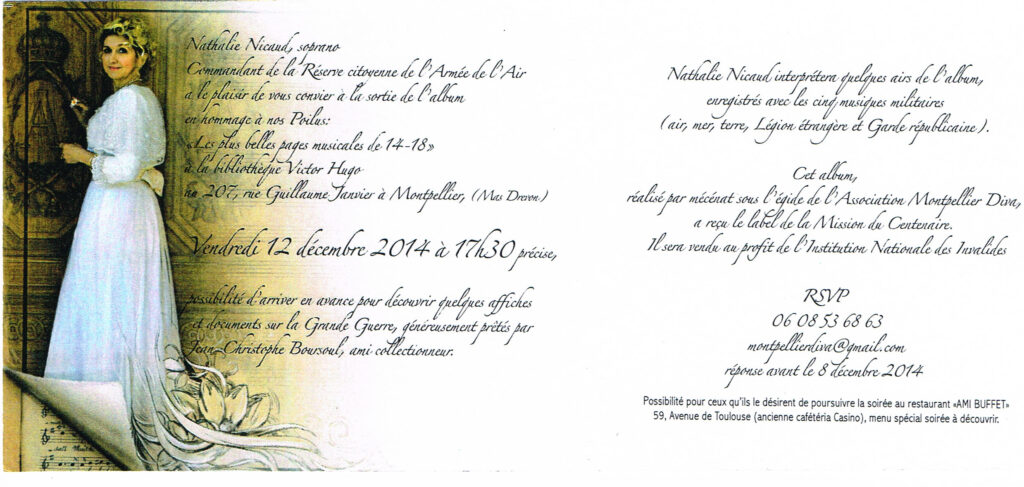 Nathalie Nicaud, soprano
Commandant de la Réserve citoyenne de l'Armée de l'Air
a le plaisir de vous convier à la sortie de l'album
en hommage à nos Poilus:
«Les plus belles pages musicales de 14-18»
à la bibliothèque Victor Hugo
au 207, rue Guillaume Janvier à Montpellier, (Mas Drevon)
Vendredi 12 décembre 2014 à 17h30 précise,
possibilité d'arriver en avance pour découvrir quelques affiches
et documents sur la Grande Guerre, généreusement prêtés par
Jean-Christophe Boursoul, ami collectionneur.
Nathalie Nicaud interprétera quelques airs de l'album,
enregistrés avec les cinq musiques militaires
(air, mer, terre, Légion étrangère et Garde républicaine).
Cet album,
réalisé par mécénat sous l'égide de l'Association Montpellier Diva,
a reçu le label de la Mission du Centenaire.
Il sera vendu au profit de l'Institution Nationale des Invalides
RSVP
06 08 53 68 63
montpellierdiva@gmail.com
réponse avant le 8 décembre 2014
Possibilité pour ceux qu'ils le désirent de poursuivre la soirée au restaurant «AMI BUFFET»
59, Avenue de Toulouse (ancienne cafétéria Casino), menu spécial soirée à découvrir.